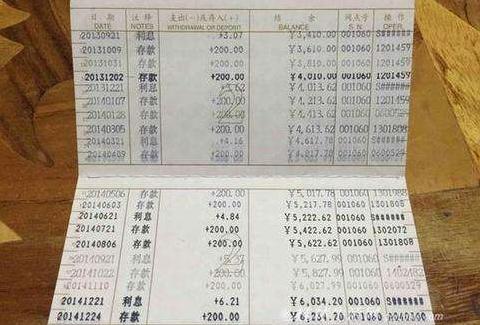 日期 注释 支出(-)或存入(+) 结余 网点号 操作
DATE NOTES WITHDRAWAL OR DEPOSIT BALANCE S.N. OPER.
20130921 利息 +3.07 ¥3,410.00 001060 S######
20131009 存款 +200.00 ¥3,610.00 001060 1201459
20131031 存款 +200.00 ¥3,810.00 001060
20131202 存款 +200.00 ¥4,010.00 001060 1201459
20131221 利息 +3.62 ¥4,013.62 001060 S######
20140107 存款 +200.00 ¥4,213.62 001060 1201459
20140128 存款 +200.00 ¥4,413.62 001060
20140305 存款 +200.00 ¥4,613.62 001060 1301808
20140321 利息 +4.16 ¥4,617.78 001060 S######
20140409 存款 +200.00 ¥4,817.78 001060
20140506 存款 +200.00 ¥5,017.78 001060 1301988
20140603 存款 +200.00 ¥5,217.78 001060
20140621 利息 +4.84 ¥5,222.62 001060 S######
20140721 存款 +200.00 ¥5,422.62 001060 1302072
20140806 存款 +200.00 ¥5,622.62 001060 1301808
20140921 利息 +5.37 ¥5,627.99 001060 S######
20141022 存款 +200.00 ¥5,827.99 001060
20141110 存款 +200.00 ¥6,027.99 001060
20141221 利息 +6.21 ¥6,034.20 001060 S######
20141224 存款 +200.00 ¥6,234.20 001060